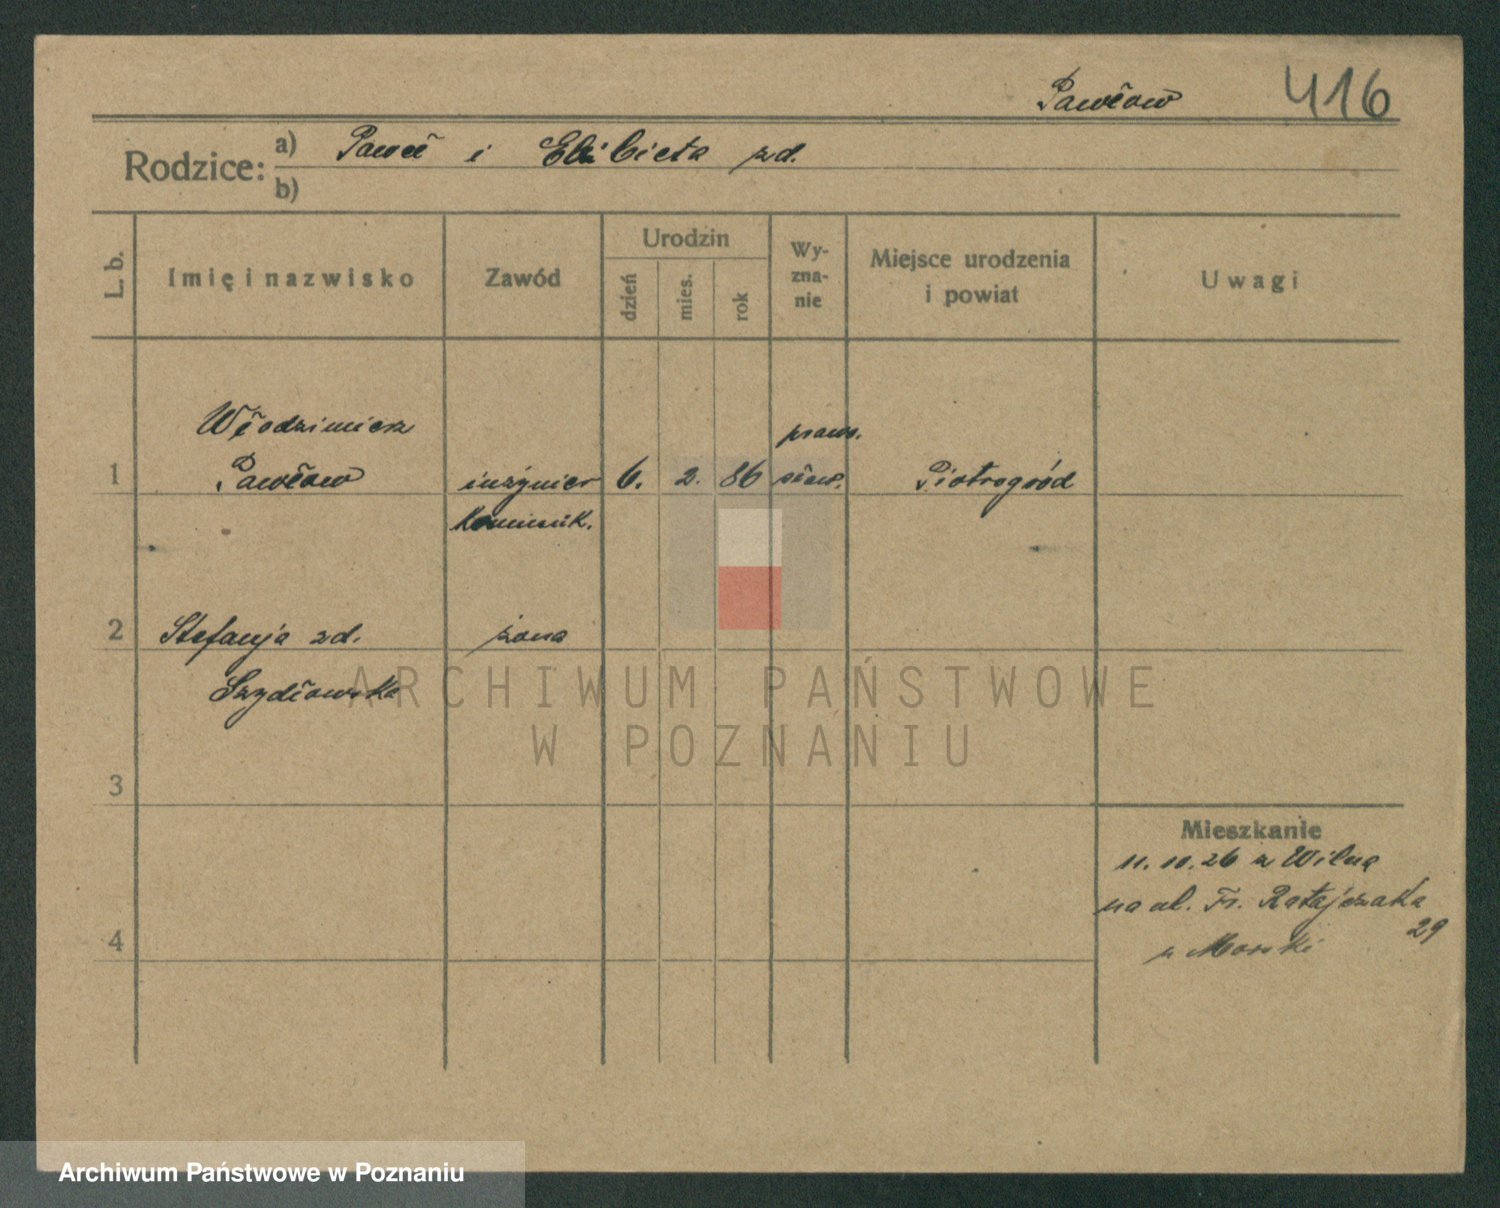 Pawłow 416
Rodzice: a) Paweł i Elżbieta zd.
b)
L. b. Imię i nazwisko Zawód Urodzin dzień mies. rok Wy-zna-nie Miejsce urodzenia i powiat Uwagi
Włodzimierz praw.
1 Pawłow inżynier 6. 2. 86 sław. Piotrogród
komunik.
2 Stefanja zd. żona
Szydłowska
ARCHIWUM PAŃSTWOWE
W POZNANIU
3
Mieszkanie
11. 10. 26 z Wilna
na ul. Fr. Ratajczaka
4 29
u Morski
Archiwum Państwowe w Poznaniu